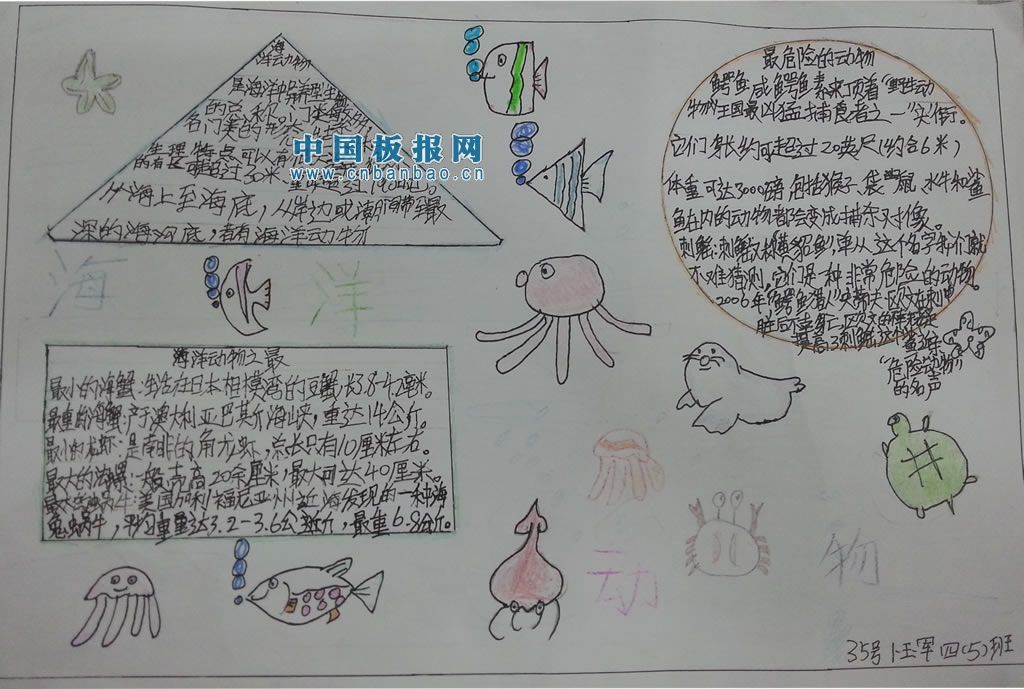 海
洋动物
是海洋中异养型生物
的总称。门类繁多,
各门类的形态
生理特点可以有
中国板报网
www.cnbanbao.cn
从海上至海底,从岸边或潮汐带至最
深的海沟底,都有海洋动物
最危险的动物
鳄鱼 咸鳄鱼素来顶着“野生动
物王国最凶猛捕食者之一”头衔。
它们身长约可超过20英尺(约合6米)
体重可达3000磅,包括猴子、袋鼠、水牛和鲨
鱼在内的动物都会变成捕杀对象。
刺鳐:刺鳐又称魟,单从这个名字我们就
不难猜测,它们是一种非常危险的动物。
2006年“鳄鱼猎
“危险动物”
的名声
海
洋
海洋动物之最
最小的海蟹:生活在日本相模湾的豆蟹,长3.8-4.2毫米。
最重的海蟹:产于澳大利亚巴斯海峡,重达14公斤。
最小的龙虾:是南非的角龙虾,总长只有10厘米左右。
最大的海螺:一般壳高20余厘米,最大可达40厘米。
美国加利福尼亚州近海发现的一种海
兔蜗牛,平均重量达3.2-3.6公斤,最重6.8公斤。
动
物
35号 四(5)班